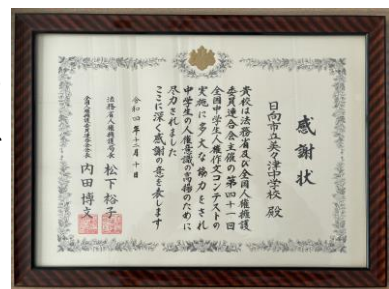 感謝状
日向市立美々津中学校 殿
貴校は法務省及び全国人権擁護
委員連合会主催の第四十一回
全国中学生人権作文コンテストの
実施に多大な協力をされ
中学生の人権意識の高揚のために
尽力されました
ここに深く感謝の意を表します
令和四年十二月十日
法務省人権擁護局長 松下裕子
全国人権擁護委員連合会会長 内田博文